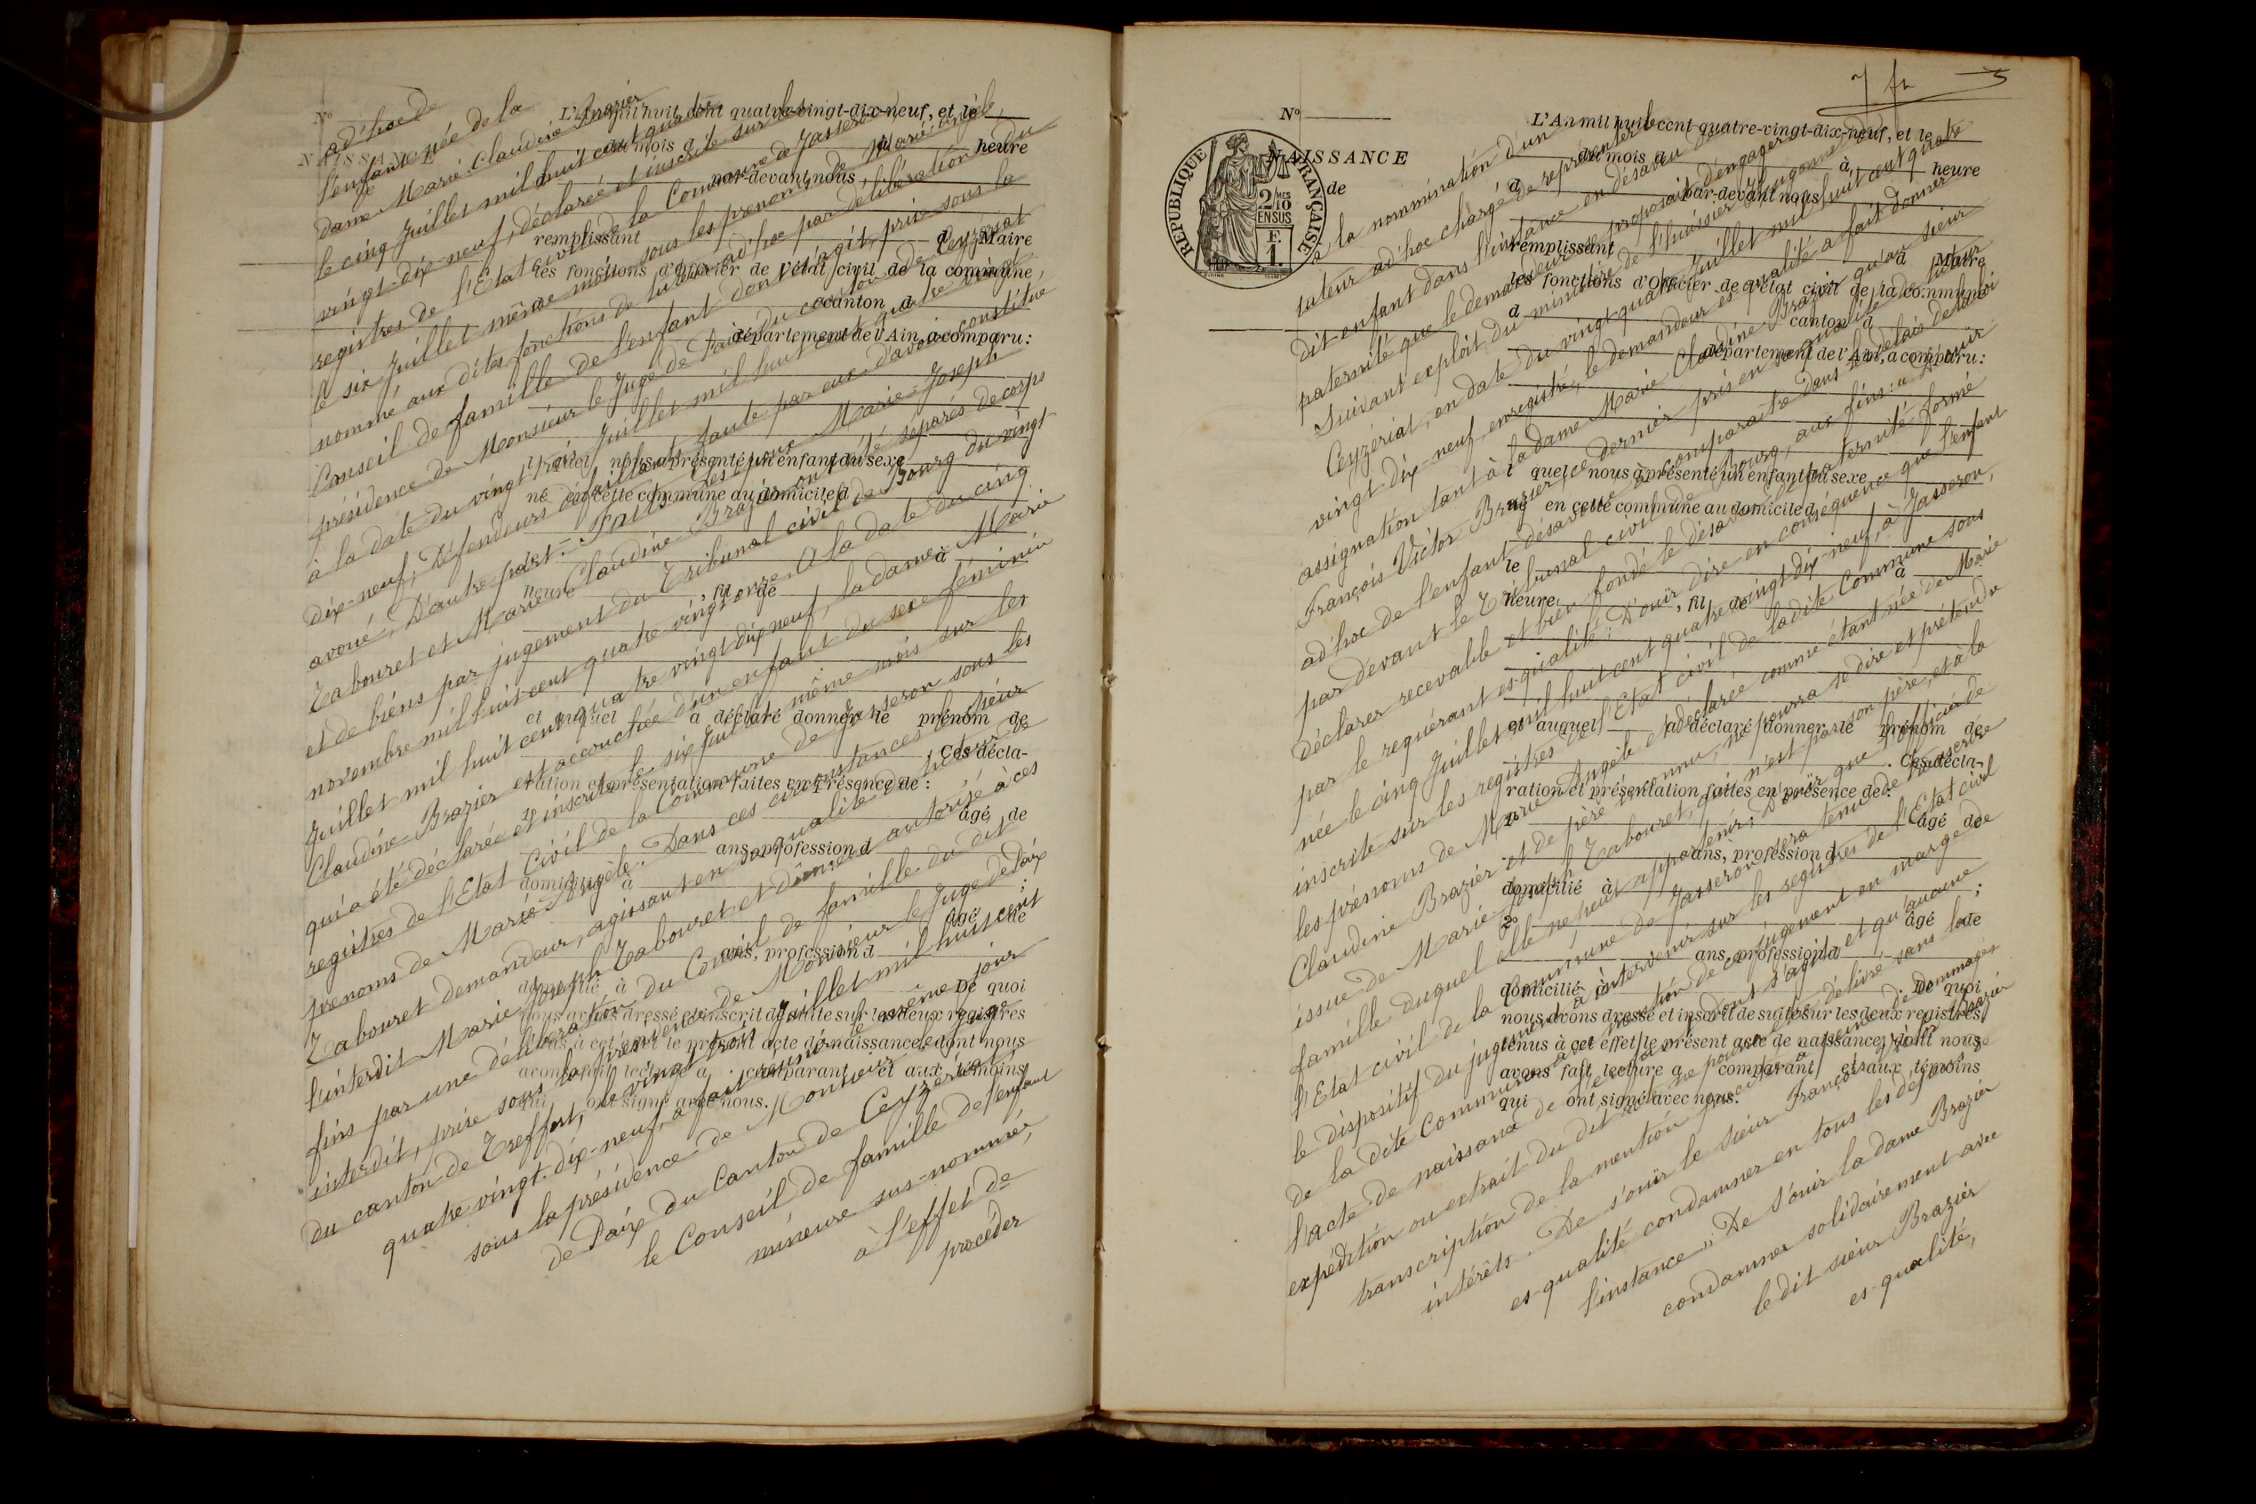 ad'hoc de
l'enfant née de la
dame Marie-Claudine Brazier
le cinq Juillet mil huit cent quatre
vingt-dix-neuf, déclarée et inscrite sur les
registres de l'Etat civil de la Commune de Jasseron
le six Juillet même mois sous les prénoms de Marie Angèle,
nommé aux dites fonctions de tuteur ad'hoc par délibération du
Conseil de famille de l'enfant dont s'agit, prise sous la
présidence de Monsieur le Juge de Paix du canton de Ceyzériat
à la date du vingt trois Juillet mil huit cent quatre vingt
dix-neuf, Défendeurs défaillants faute par eux d'avoir constitué
avoué, D'autre part. Faits. Les époux Marie-Joseph
Tabouret et Marie Claudine Brazier ont été séparés de corps
et de biens par jugement du Tribunal civil de Bourg du vingt
novembre mil huit cent quatre-vingt onze. A la date du cinq
Juillet mil huit cent quatre vingt dix neuf, la dame Marie
Claudine Brazier est accouchée d'un enfant du sexe féminin
qui a été déclarée et inscrite le six Juillet même mois sur les
registres de l'Etat civil de la Commune de Jasseron sous les
prénoms de Marie-Angèle. Dans ces circonstances le sieur
Tabouret demandeur, agissant en sa qualité de tuteur de
l'interdit Marie Joseph Tabouret et dûment autorisé à ces
fins par une délibération du Conseil de famille du dit
interdit, prise sous la présidence de Monsieur le Juge de Paix
du canton de Treffort, le vingt trois Juillet mil huit cent
quatre vingt-dix-neuf, a fait réunir le même jour
sous la présidence de Monsieur le Juge
de Paix du canton de Ceyzériat,
le Conseil de famille de l'enfant
mineure sus-nommée,
à l'effet de
procéder
N°
NAISSANCE
de
L'An mil huit cent quatre-vingt-dix-neuf, et le
du mois d à heure
par-devant nous
remplissant d Maire
les fonctions d'officier de l'état civil de la commune
canton d
département de l'Ain, a comparu :
lequel nous a présenté un enfant du sexe
né en cette commune au domicile d
à
heure, fil de
et auquel a déclaré donner le prénom de
Ces décla-
ration et présentation faites en présence de :
1° âgé de
ans, profession d
domicilié à ;
âgé de
ans, profession d
domicilié à De quoi
nous avons dressé et inscrit de suite sur les deux registres
tenus à cet effet le présent acte de naissance, dont nous
avons fait lecture a comparant et aux témoins
qui ont signé avec nous.
7 fr
à la nomination d'un
tuteur ad'hoc chargé de représenter le
dit enfant dans l'instance en désaveu de
paternité que le demandeur se proposait d'engager.
Suivant exploit du ministère de l'huissier
Ceyzériat, en date du vingt-quatre Juillet mil huit cent quatre
vingt-dix-neuf, enregistré, le demandeur es-qualité a fait donner
assignation tant à la dame Marie Claudine Brazier qu'au sieur
François Victor Brazier, ce dernier pris en sa qualité de tuteur
ad'hoc de l'enfant désavoué à comparaître dans les délais de la loi
par devant le Tribunal civil de Bourg, aux fins : « S'ouïr
déclarer recevable et bien fondé le désaveu de paternité formé
par le requérant es-qualité ; D'ouïr dire en conséquence que l'enfant
née le cinq Juillet mil huit cent quatre vingt-dix-neuf, à Jasseron,
inscrite sur les registres de l'Etat civil de la dite Commune sous
les prénoms de Marie Angèle et déclarée comme étant née de Marie
Claudine Brazier et de père inconnu, ne pourra se dire et prétendre
issue de Marie Joseph Tabouret, qui n'est pas son père, et à la
famille duquel elle ne peut appartenir ; D'ouïr que l'officier de
l'Etat civil de la Commune de Jasseron sera tenu de transcrire
le dispositif du jugement à intervenir sur les registres de l'Etat civil
de la dite Commune avec mention de ce jugement en marge de
l'acte de naissance de l'enfant dont s'agit et qu'aucune
expédition ou extrait du dit acte ne pourra être délivré sans la
transcription de la mention précitée à peine de dommages
intérêts. De s'ouïr le sieur François Victor Brazier
es-qualité condamner en tous les dépens de
l'instance ; De s'ouïr la dame Brazier
condamner solidairement avec
le dit sieur Brazier
es-qualité,
N°
NAISSANCE
de
REPUBLIQUE FRANÇAISE
2/10
EN SUS
F.
1.
L'An mil huit cent quatre-vingt-dix-neuf, et le
du mois d
à heure
par-devant nous
remplissant d Maire
les fonctions d'officier de l'état civil de la commune
d
canton d
département de l'Ain, a comparu :
lequel nous a présenté un enfant du sexe
né en cette commune au domicile d
le à
heure, fil de
et auquel a déclaré donner le prénom de
Ces décla-
ration et présentation faites en présence de :
1° âgé de
ans, profession d
domicilié à ;
2° âgé de
ans, profession d
domicilié à De quoi
nous avons dressé et inscrit de suite sur les deux registres
tenus à cet effet le présent acte de naissance, dont nous
avons fait lecture a comparant et aux témoins
qui ont signé avec nous.